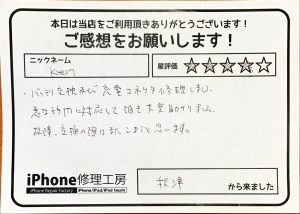 本日は当店をご利用頂きありがとうございます!
ご感想をお願いします!
ニックネーム
Ken
星評価
・バッテリ交換及び充電コネクタ修理しました。
急な訪問に対応して頂き大変助かりました。
故障、交換の際はまたこようと思います。
iPhone修理工房
iPhone Repair Factory
iPhone/iPad/iPod touch
秋津
から来ました